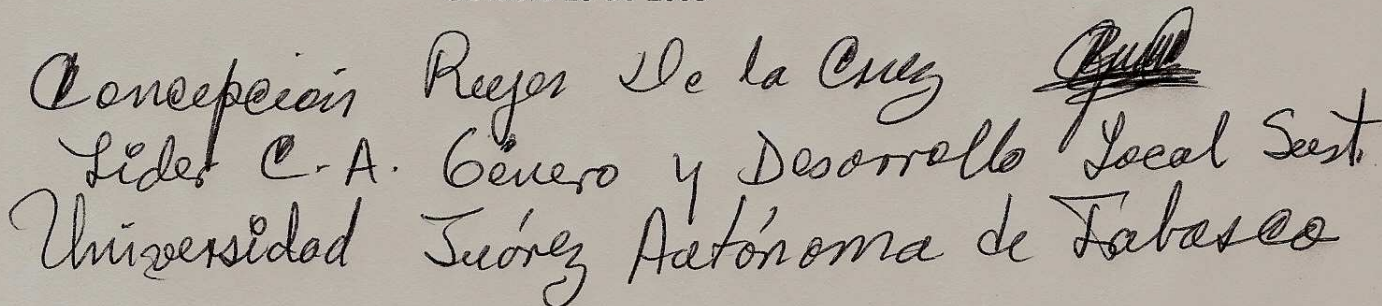 Concepción Reyes De la Cruz
Líder C.A. Género y Desarrollo Local Sust.
Universidad Juárez Autónoma de Tabasco